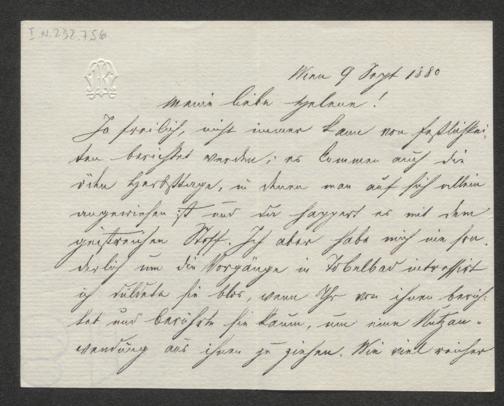 I.N.232.756
Wien 9 Sept 1880
Meine liebe Helene!
Ja freilich, nicht immer kann von Festlichkei-
ten berichtet werden; es kommen auch die
öden Herbsttage, in denen man auf sich allein
angewiesen ist und da happert es mit dem
geistreichen Stoff. Ich aber habe mich nie son-
derlich um die Vorgänge in Tobelbad intressirt
ich duldete sie blos, wenn Ihr von ihnen berich-
tet und berührte sie kaum, um eine Nutzan-
wendung aus ihnen zu ziehen. Wie viel reicher